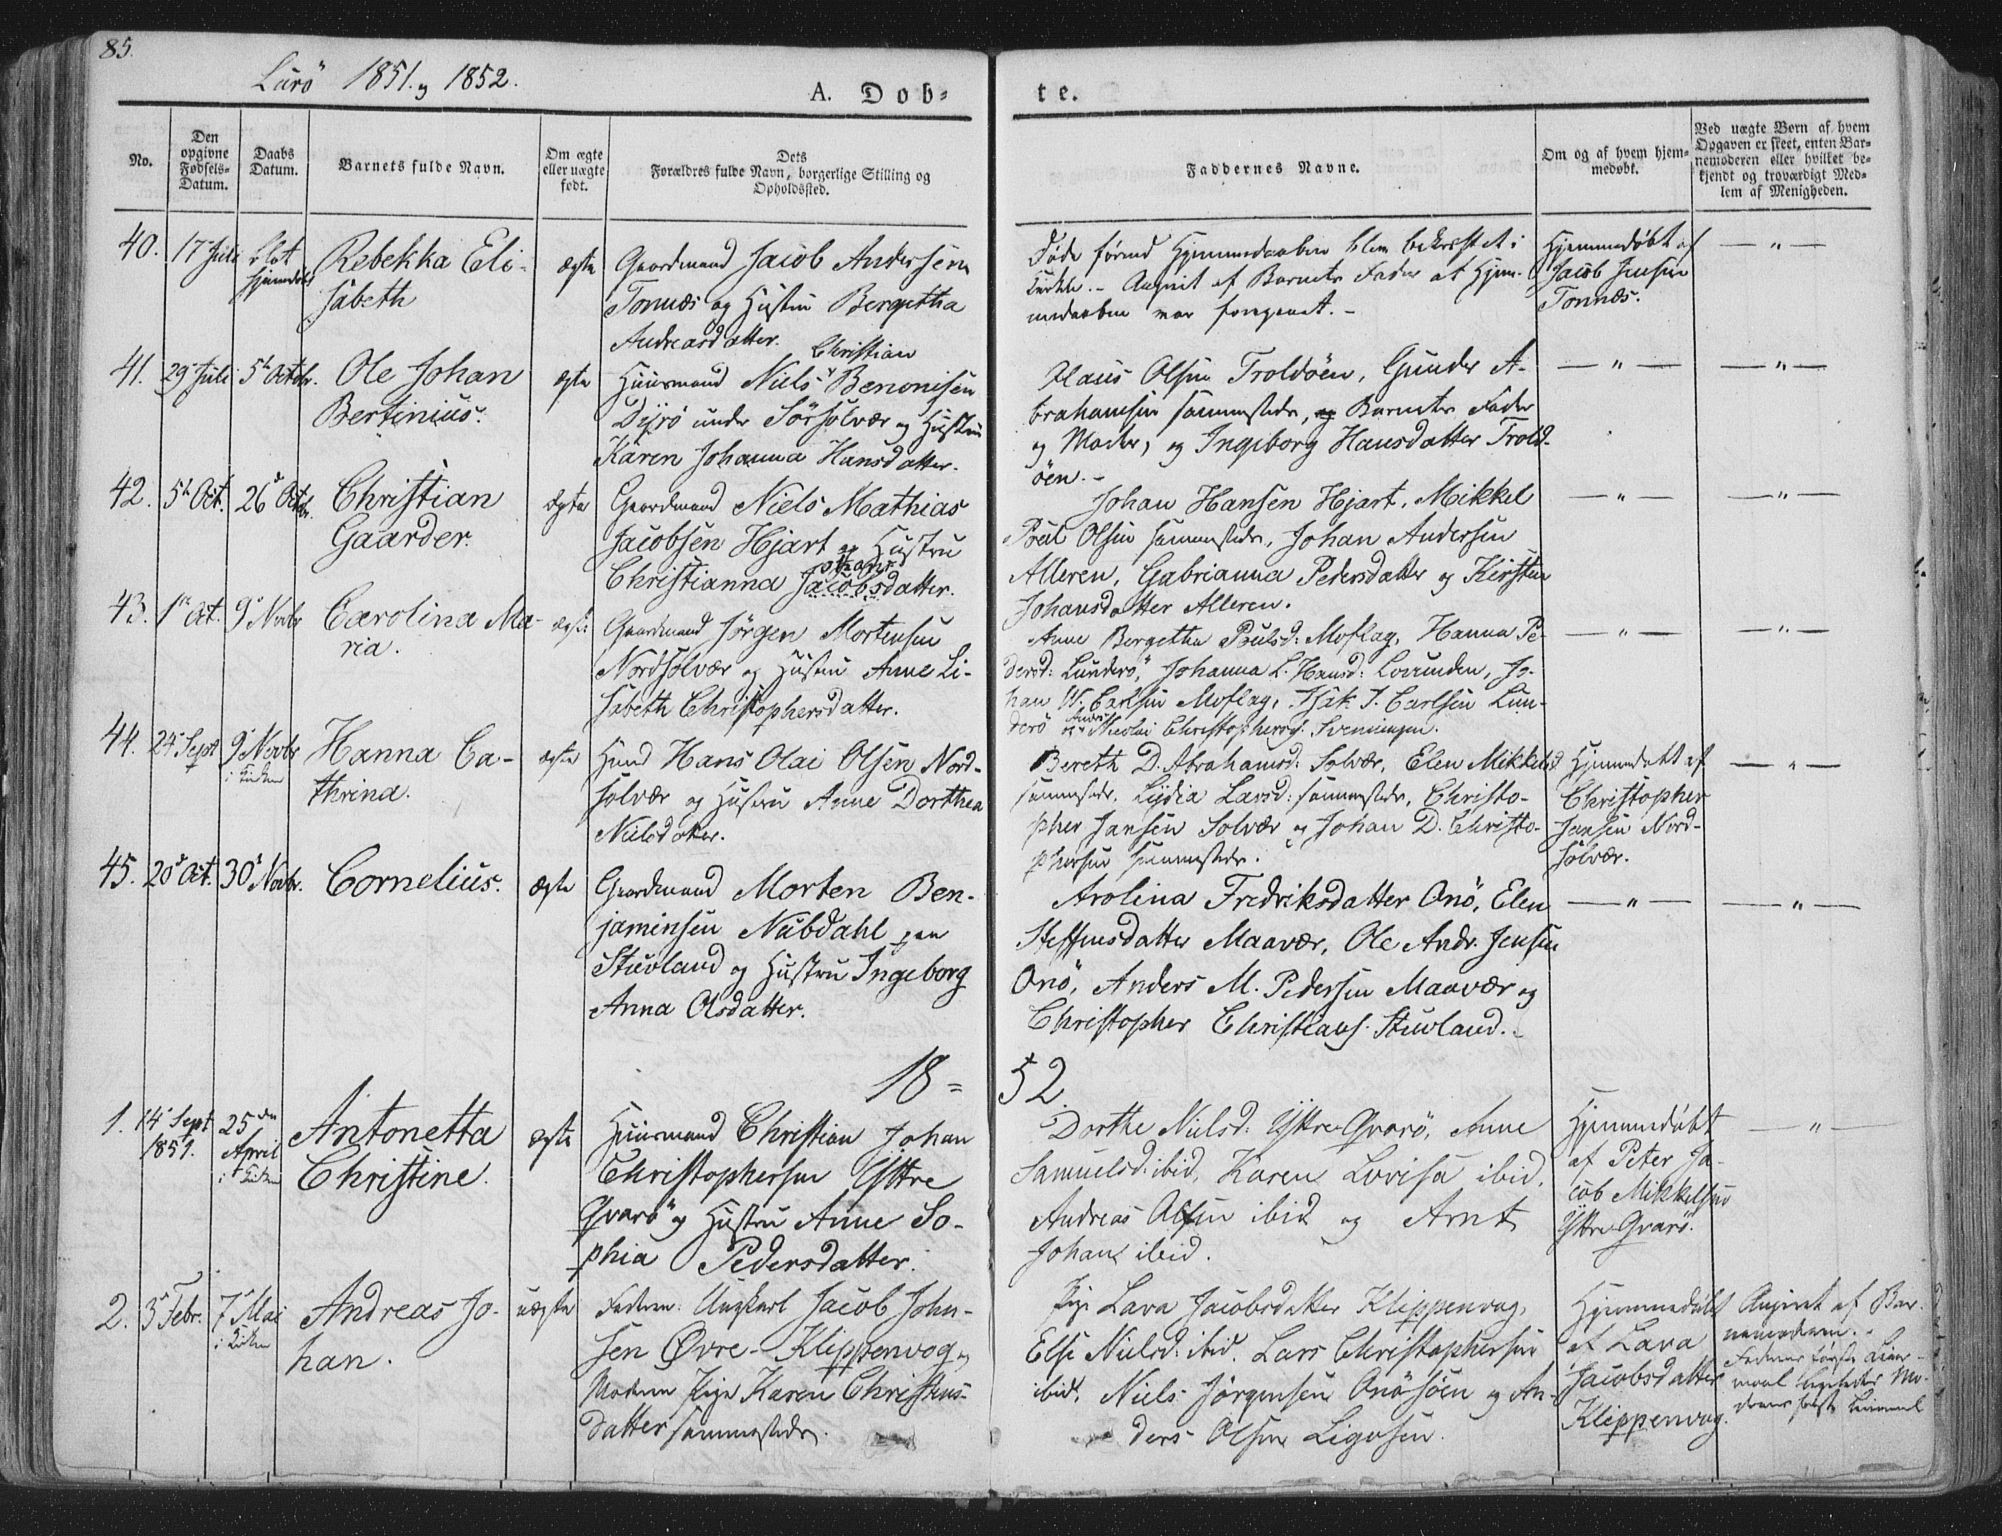 85.
Lurö 1851. og 1852.
A. Dob-
te.
No.
Den opgivne Fødsels-Datum.
Daabs Datum.
Barnets fulde Navn.
Om ægte eller uægte født.
Dets Forældres fulde Navn, borgerlige Stilling og Opholdssted.
Faddernes Navne.
Om og af hvem hjem-medøbt.
Ved uægte Børn af hvem Opgaven er skeet, enten Bar-nemoderen eller hvilket be-kjendt og troværdigt Med-lem af Menigheden.
40.
17 Juli
blot
hjemdøbt
Rebekka Eli-
sabeth
ægte
Gaardmand Jacob Andersen
Tonnæs og Hustru Bergetha
Andreasdatter.
Døde førend Hjemmedaaben blev bekræftet i
Kirken. - Angivet af Barnets Fader at Hjem-
medaaben var foregaaet. -
Hjemmedøbt af
Jacob Jensen
Tonnæs.
— " —
41.
29 Juli
5 Octobr.
Ole Johan
Bertinius.
ægte
Christian
Huusmand Niels Benonisen
Dyrö under Sörsolvær og Hustru
Karen Johanna Hansdatter.
Hans Olsen Troldöen, Gunder A-
brahamsen sammesteds, og Barnets Fader
og Moder, og Ingeborg Hansdatter Trold-
öen. -
— " —
— " —
42.
5 Oct.
26 Octbr.
Christian
Gaarder.
ægte
Gaardmand Niels Mathias
Jacobsen Hjart og Hustru
Johans
Christianna Jacobsdatter.
Johan Hansen Hjart, Mikkel
Poul Olsen sammesteds, Johan Andersen
Alleren, Gabrianna Pedersdatter og Kirsten
Johansdatter Alleren.
— " —
— " —
43.
1 Oct.
9 Novbr
Carolina Ma-
ria.
ægte
Gaardmand Jörgen Mortensen
Nordsolvær og Hustru Anne Li-
sabeth Christophersdatter.
Anne Bergetha Poulsd: Moflag, Hanna Pe-
dersd: Lunderö, Johanna L. Hansd: Lovunden, Jo-
han W. Carlsen Moflag, Isak J. Carlsen Lun-
derö og Nicolai Christophers. Svenningen.
— " —
— " —
44.
24 Sept
9 Novbr
i Kirken
Hanna Ca-
thrina.
ægte
Huusmd Hans Olai Olsen Nord-
solvær og Hustru Anne Dorthea
Nielsdatter.
Bereth D. Abrahamsd: Solvær, Elen Mikkelsd
sammesteds, Lydia Larsd: sammesteds, Christo-
pher Jansen Solvær og Johan D. Christo-
phersen sammesteds.
Hjemmedøbt af
Christopher
Jansen Nord-
solvær.
— " —
45.
20 Oct.
30 Novbr.
Cornelius.
ægte
Gaardmand Morten Ben-
jaminsen Nubdahl paa
Stuvland og Hustru Ingeborg
Anna Olsdatter.
Arolina Fredriksdatter Onö, Elen
Steffensdatter Maavær, Ole Andr. Jensen
Onö, Anders M. Pedersen Maavær og
Christopher Christians. Stuvland. -
— " —
— " —
18=
52.
1.
14 Sept
1851.
25de
April
i Kirken
Antonetta
Christine.
ægte
Huusmand Christian Johan
Christophersen Yttre
Qvarö og Hustru Anne So-
phia Pedersdatter.
Dorthe Nielsd: Yttre-Qvarö, Anne
Samuelsd: ibid, Karen Lovisa ibid,
Andreas Olsen ibid og Arnt
Johan ibid.
Hjemmedøbt
af Peter Ja-
cob Mikkelsen
Yttre-Qvarö.
— " —
2.
3 Febr.
7 Mai
i Kirken
Andreas Jo-
han.
uægte
Faderen: Ungkarl Jacob John-
sen Øvre-Klippenvog og
Moderen Pige Karen Christens-
datter sammesteds.
Pige Lava Jacobsdatter Klippenvag,
Else Nielsd: ibid. Lars Christophersen
ibid. Niels Jörgensen Onösöen og An-
ders Olsen
Hjemmedøbt
af Lava
Jacobsdatter
Klippenvag.
Angivet af Bar-
nemoderen. -
Faderens første Leier-
maal ligeledes Mo-
derens første